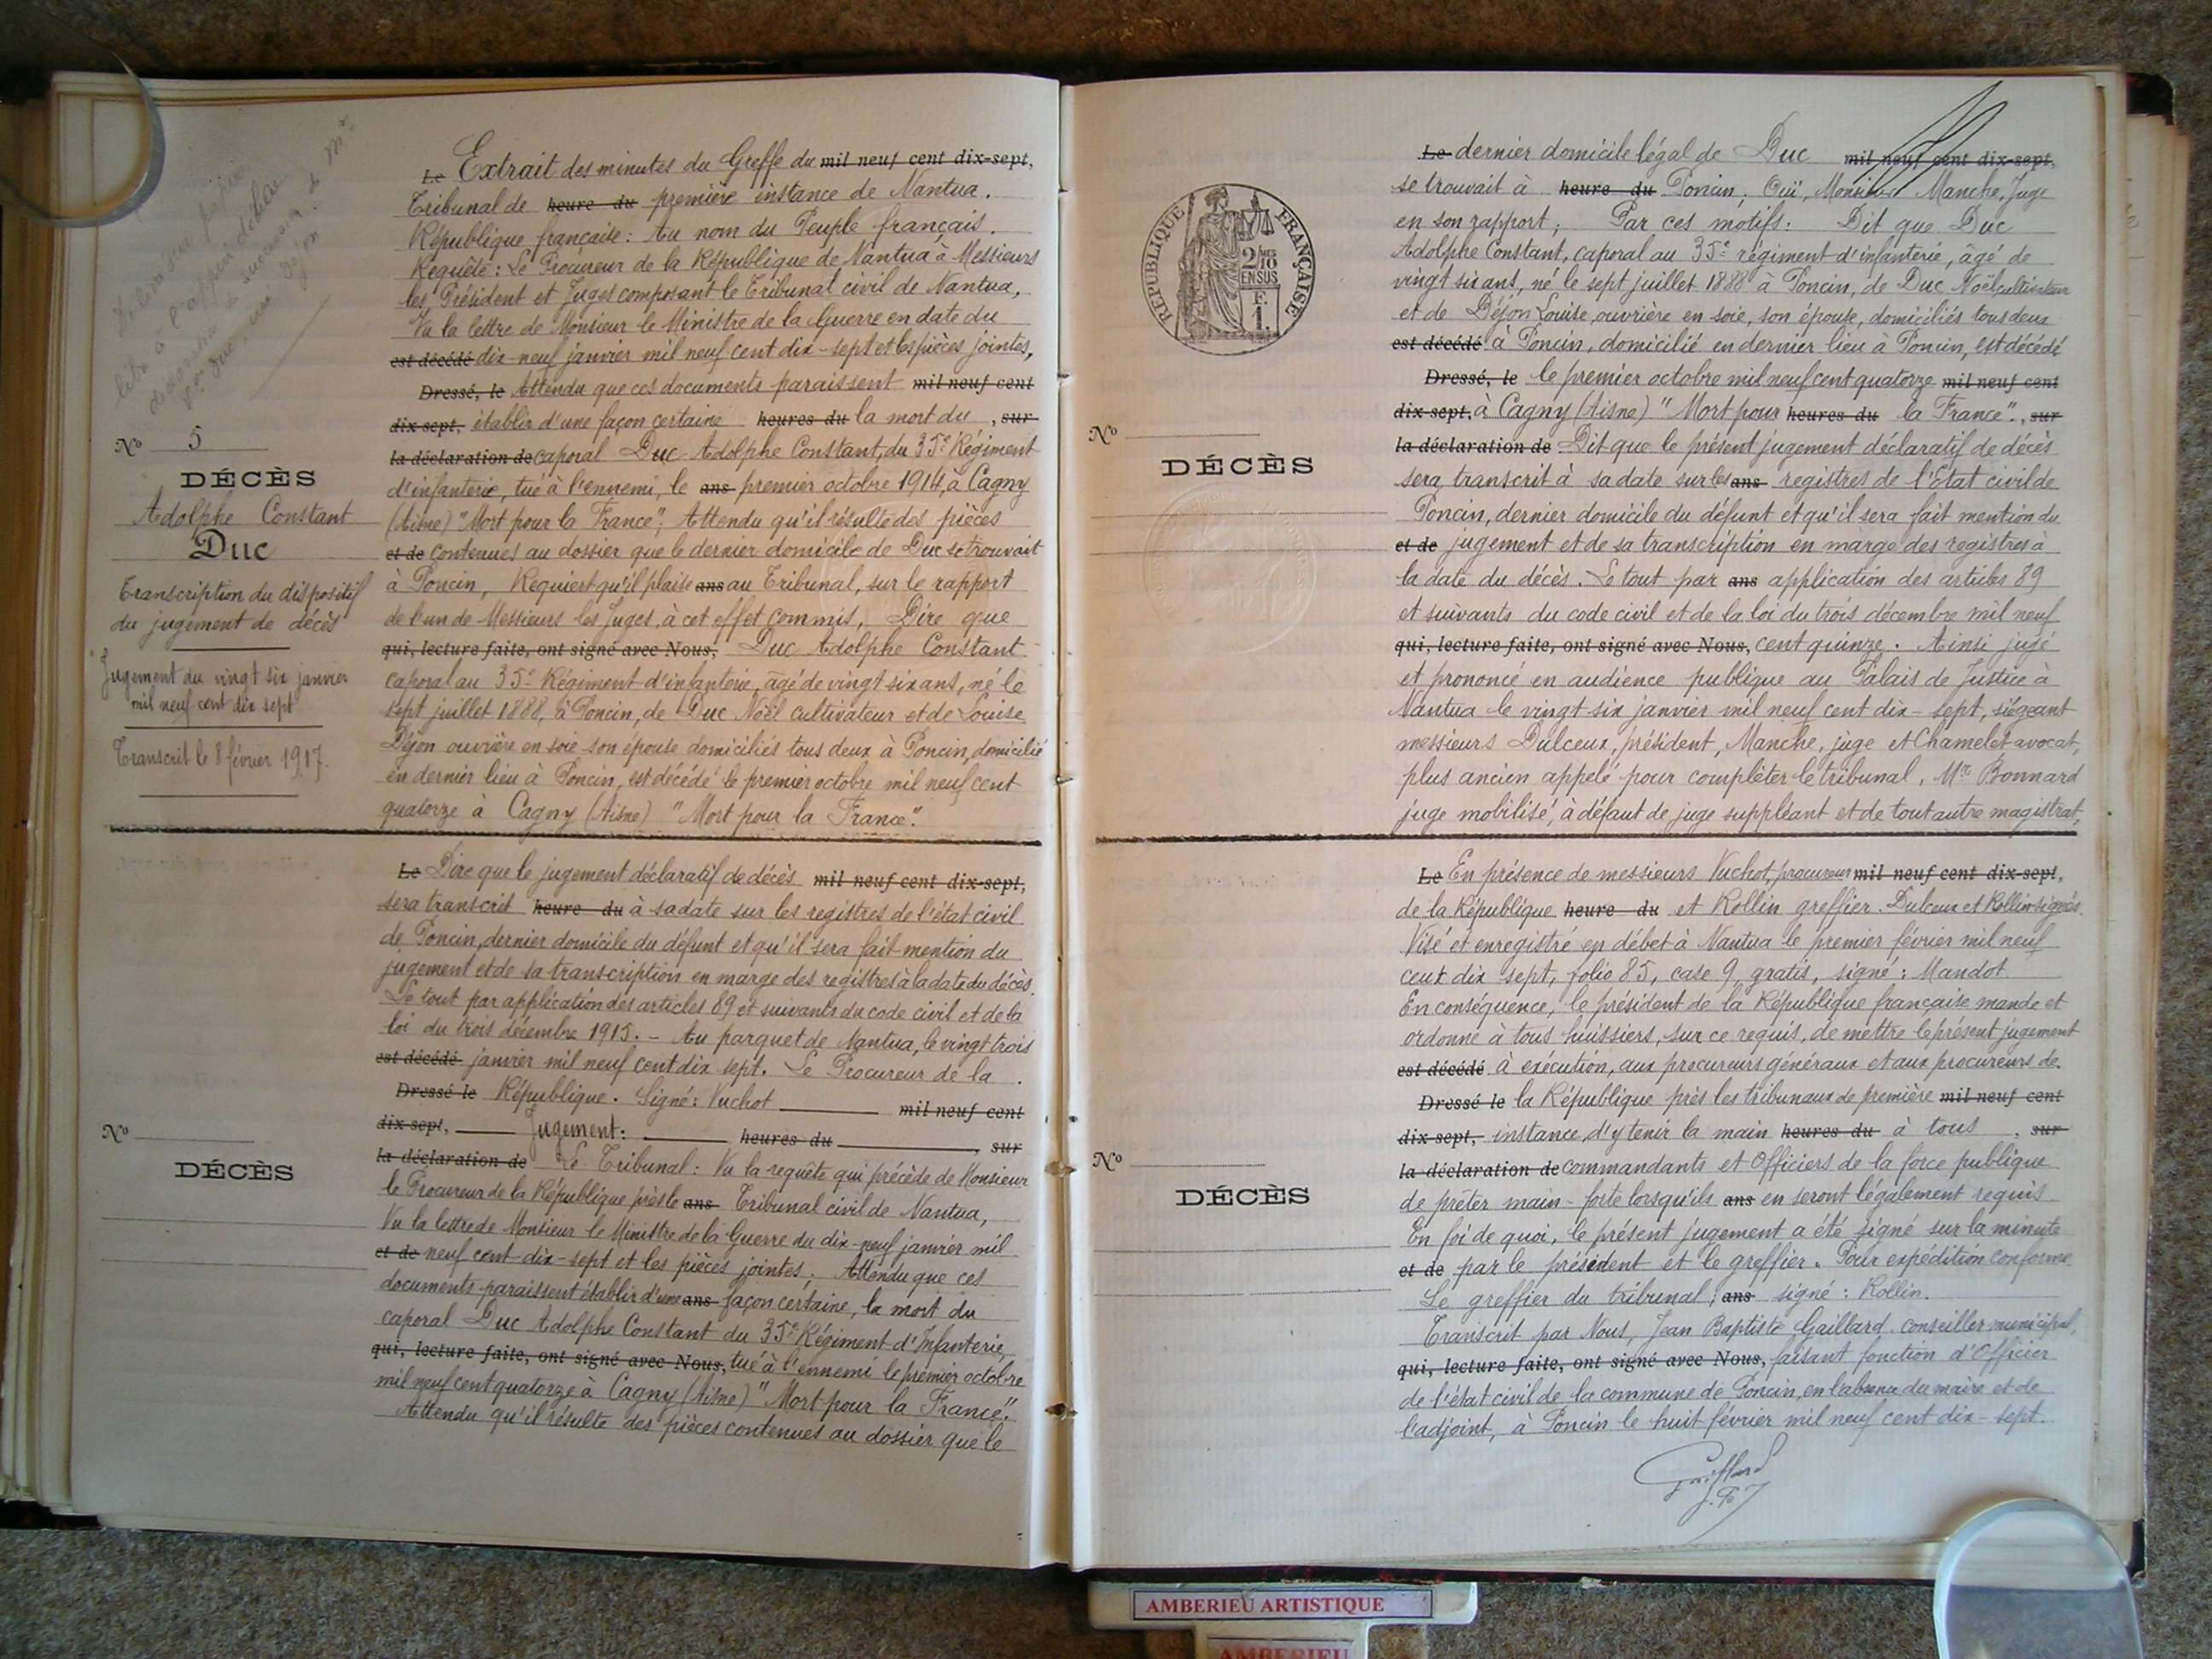 Le Extrait des minutes du Greffe du mil neuf cent dix-sept,
Tribunal de heure du première instance de Nantua.
République française : Au nom du Peuple français.
Requête : Le Procureur de la République de Nantua à Messieurs
les Président et Juges composant le Tribunal civil de Nantua,
Vu la lettre de Monsieur le Ministre de la Guerre en date du
est décédé dix-neuf janvier mil neuf cent dix-sept et les pièces jointes,
Dressé, le Attendu que ces documents paraissent mil neuf cent
dix-sept, établir d'une façon certaine heures du la mort du , sur
la déclaration de caporal Duc Adolphe Constant, du 35e Régiment
d'infanterie, tué à l'ennemi, le ans premier octobre 1914, à Cagny
(Aisne) "Mort pour la France"; Attendu qu'il résulte des pièces
et de contenues au dossier que le dernier domicile de Duc se trouvait
à Poncin, Requiert qu'il plaise ans au Tribunal, sur le rapport
de l'un de Messieurs les Juges, à cet effet commis, Dire que
qui, lecture faite, ont signé avec Nous, Duc Adolphe Constant
caporal au 35e Régiment d'infanterie, âgé de vingt six ans, né le
sept juillet 1888, à Poncin, de Duc Noël cultivateur et de Louise
Déjon ouvrière en soie son épouse domiciliés tous deux à Poncin, domicilié
en dernier lieu à Poncin, est décédé le premier octobre mil neuf cent
quatorze à Cagny (Aisne) "Mort pour la France".
No 5
DÉCÈS
Adolphe Constant
Duc
Transcription du dispositif
du jugement de décès
Jugement du vingt six janvier
mil neuf cent dix sept
Transcrit le 8 février 1917.
Le Dire que le jugement déclaratif de décès mil neuf cent dix-sept,
sera transcrit heure du à sa date sur les registres de l'état civil
de Poncin, dernier domicile du défunt et qu'il sera fait mention du
jugement et de sa transcription en marge des registres à la date du décès.
Le tout par application des articles 89 et suivants du code civil et de la
loi du trois décembre 1915. - Au parquet de Nantua, le vingt trois
est décédé janvier mil neuf cent dix sept. Le Procureur de la
Dressé le République. Signé : Vuchot mil neuf cent
dix-sept, Jugement : heures du , sur
la déclaration de Le Tribunal : Vu la requête qui précède de Monsieur
le Procureur de la République près le ans Tribunal civil de Nantua,
Vu la lettre de Monsieur le Ministre de la Guerre du dix-neuf janvier mil
et de neuf cent dix-sept et les pièces jointes ; Attendu que ces
documents paraissent établir d'une ans façon certaine, la mort du
caporal Duc Adolphe Constant du 35e Régiment d'Infanterie,
qui, lecture faite, ont signé avec Nous, tué à l'ennemi le premier octobre
mil neuf cent quatorze à Cagny (Aisne) "Mort pour la France".
Attendu qu'il résulte des pièces contenues au dossier que le
No
DÉCÈS
RÉPUBLIQUE FRANÇAISE
2/10 EN SUS
F. 1.
Le dernier domicile légal de Duc mil neuf cent dix-sept,
se trouvait à heure du Poncin, Ouï, Monsieur Manche, Juge
en son rapport ; Par ces motifs : Dit que Duc
Adolphe Constant, caporal au 35e régiment d'infanterie, âgé de
vingt six ans, né le sept juillet 1888 à Poncin, de Duc Noël cultivateur
et de Déjon Louise, ouvrière en soie, son épouse, domiciliés tous deux
est décédé à Poncin, domicilié en dernier lieu à Poncin, est décédé
Dressé, le le premier octobre mil neuf cent quatorze mil neuf cent
dix-sept, à Cagny (Aisne) "Mort pour heures du la France". , sur
la déclaration de Dit que le présent jugement déclaratif de décès
sera transcrit à sa date sur les ans registres de l'Etat civil de
Poncin, dernier domicile du défunt et qu'il sera fait mention du
et de jugement et de sa transcription en marge des registres à
la date du décès. Le tout par ans application des articles 89
et suivants du code civil et de la loi du trois décembre mil neuf
qui, lecture faite, ont signé avec Nous, cent quinze. Ainsi jugé
et prononcé en audience publique au Palais de Justice à
Nantua le vingt six janvier mil neuf cent dix-sept, siégeant
messieurs Dulceux, président, Manche, juge et Chamelet avocat,
plus ancien appelé pour compléter le tribunal, Mre Bonnard
juge mobilisé, à défaut de juge suppléant et de tout autre magistrat,
No
DÉCÈS
Le En présence de messieurs Vuchot, procureur mil neuf cent dix-sept,
de la République heure du et Rollin greffier. Dulceux et Rollin signés.
Visé et enregistré en débet à Nantua le premier février mil neuf
cent dix sept, folio 85, case 9, gratis, signé : Mandot
En conséquence, le président de la République française mande et
ordonne à tous huissiers, sur ce requis, de mettre le présent jugement
est décédé à exécution, aux procureurs généraux et aux procureurs de
Dressé le la République près les tribunaux de première mil neuf cent
dix-sept, instance, d'y tenir la main heures du à tous , sur
la déclaration de commandants et Officiers de la force publique
de prêter main-forte lorsqu'ils ans en seront légalement requis
En foi de quoi, le présent jugement a été signé sur la minute
et de par le président et le greffier. Pour expédition conforme.
Le greffier du tribunal ; ans signé : Rollin.
Transcrit par Nous, Jean Baptiste Gaillard conseiller municipal,
qui, lecture faite, ont signé avec Nous, faisant fonction d'Officier
de l'état civil de la commune de Poncin, en l'absence du maire et de
l'adjoint, à Poncin le huit février mil neuf cent dix-sept.
Gaillard
No
DÉCÈS
AMBERIEU ARTISTIQUE
AMBERIEU